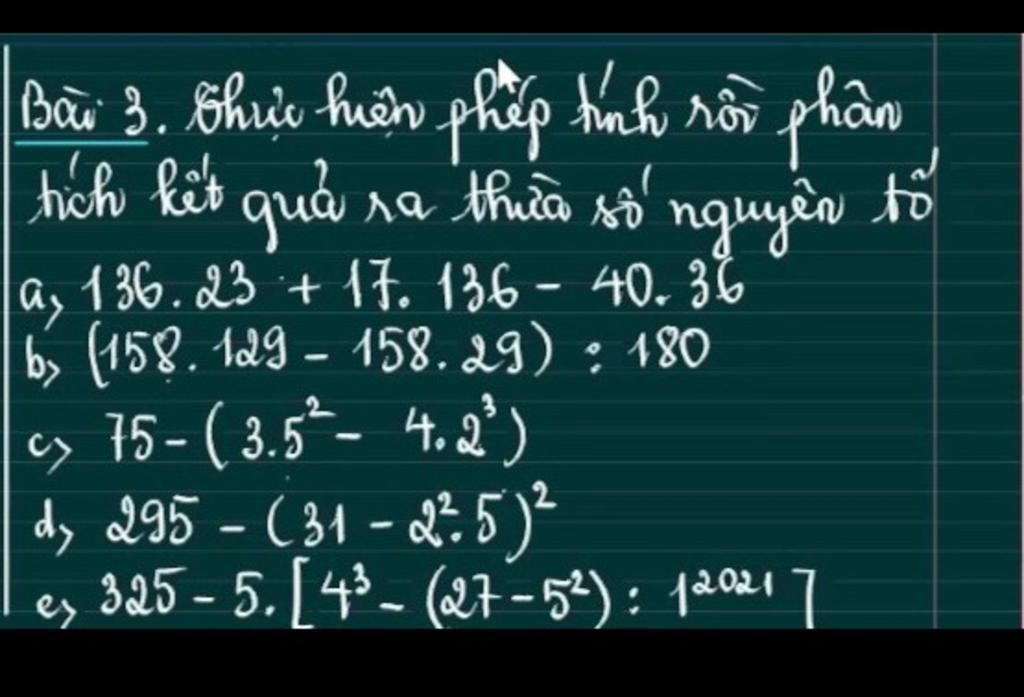 Bài 3. Thực hiện phép tính rồi phân
tích kết quả ra thừa số nguyên tố
a, 136.23 + 17.136 - 40.36
b, (158.129 - 158.29) : 180
c, 75 - (3.5² - 4.2³)
d, 295 - (31 - 2².5)²
e, 325 - 5.[4³ - (27 - 5²) : 1²⁰²¹]